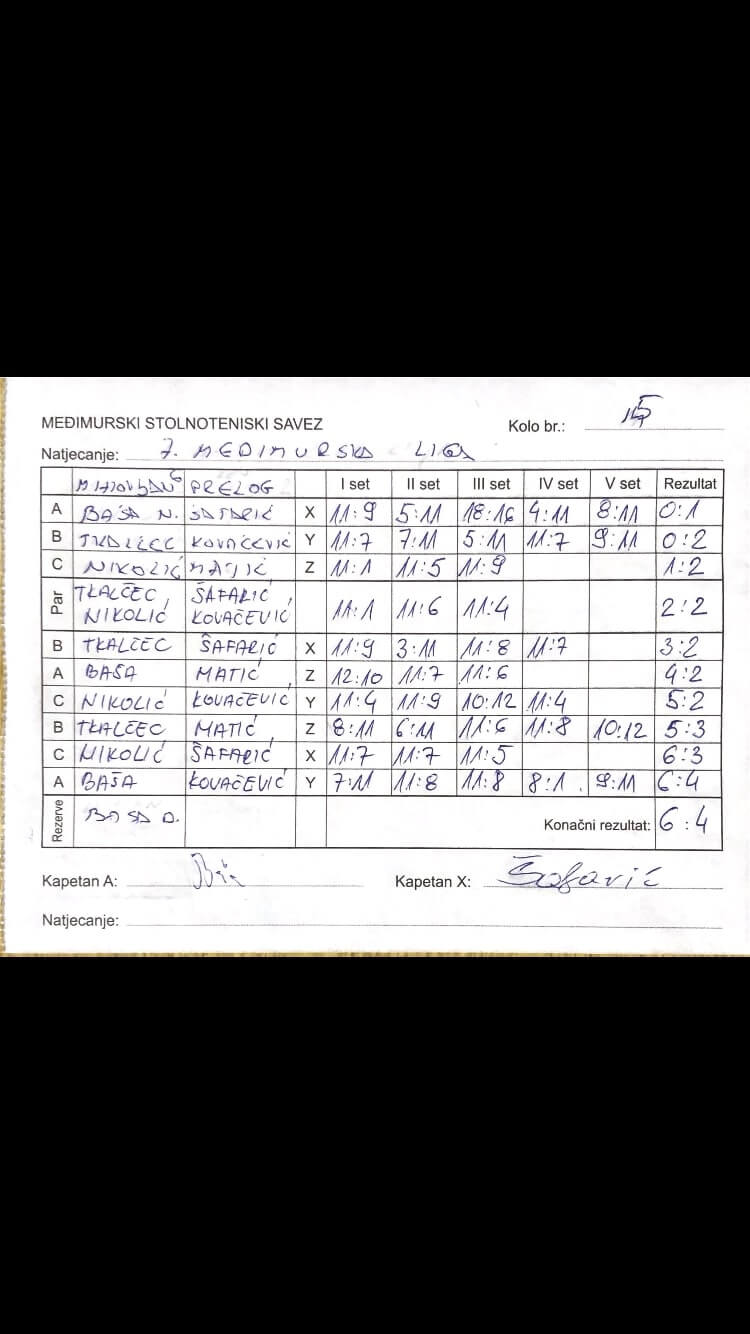 MEĐIMURSKI STOLNOTENISKI SAVEZ
Kolo br.: 15
Natjecanje: 7. MEĐIMURSKA LIGA
PRELOG I set II set III set IV set V set Rezultat
A BAŠA N. ŠAFARIĆ X 11:9 5:11 18:16 4:11 8:11 0:1
B TKALČEC KOVAČEVIĆ Y 11:7 7:11 5:11 11:7 9:11 0:2
C NIKOLIĆ MATIĆ Z 11:1 11:5 11:9 1:2
Par TKALČEC, NIKOLIĆ ŠAFARIĆ, KOVAČEVIĆ 11:1 11:6 11:4 2:2
B TKALČEC ŠAFARIĆ X 11:9 3:11 11:8 11:7 3:2
A BAŠA MATIĆ Z 12:10 11:7 11:6 4:2
C NIKOLIĆ KOVAČEVIĆ Y 11:4 11:9 10:12 11:4 5:2
B TKALČEC MATIĆ Z 8:11 6:11 11:6 11:8 10:12 5:3
C NIKOLIĆ ŠAFARIĆ X 11:7 11:7 11:5 6:3
A BAŠA KOVAČEVIĆ Y 7:11 11:8 11:8 8:1 9:11 6:4
Rezerve BAŠA D. Konačni rezultat: 6:4
Kapetan A: Kapetan X: Šafarić
Natjecanje: